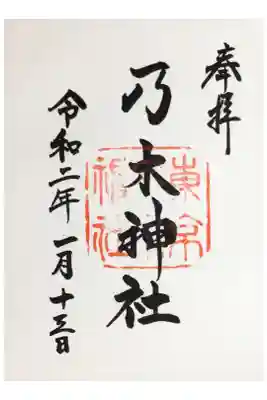 奉拝
乃木神社
東京
令和二年一月十三日